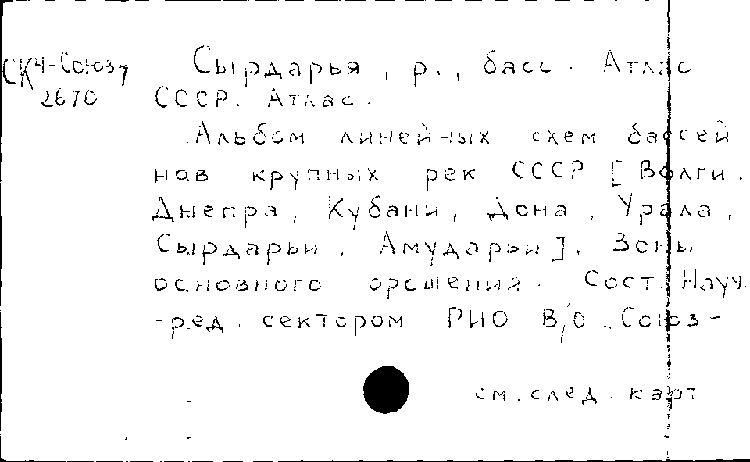 СК4-Союз7 Сырдарья, р., басс. Атлас
2670 СССР. Атлас.
Альбом линейных схем бассей
нов крупных рек СССР [Волги,
Днепра, Кубани, Дона, Урала,
Сырдарьи, Амударьи]. Зоны
основного орошения. Сост. Науч.
-ред. сектором РИО В/О „Союз-
см. след. карт